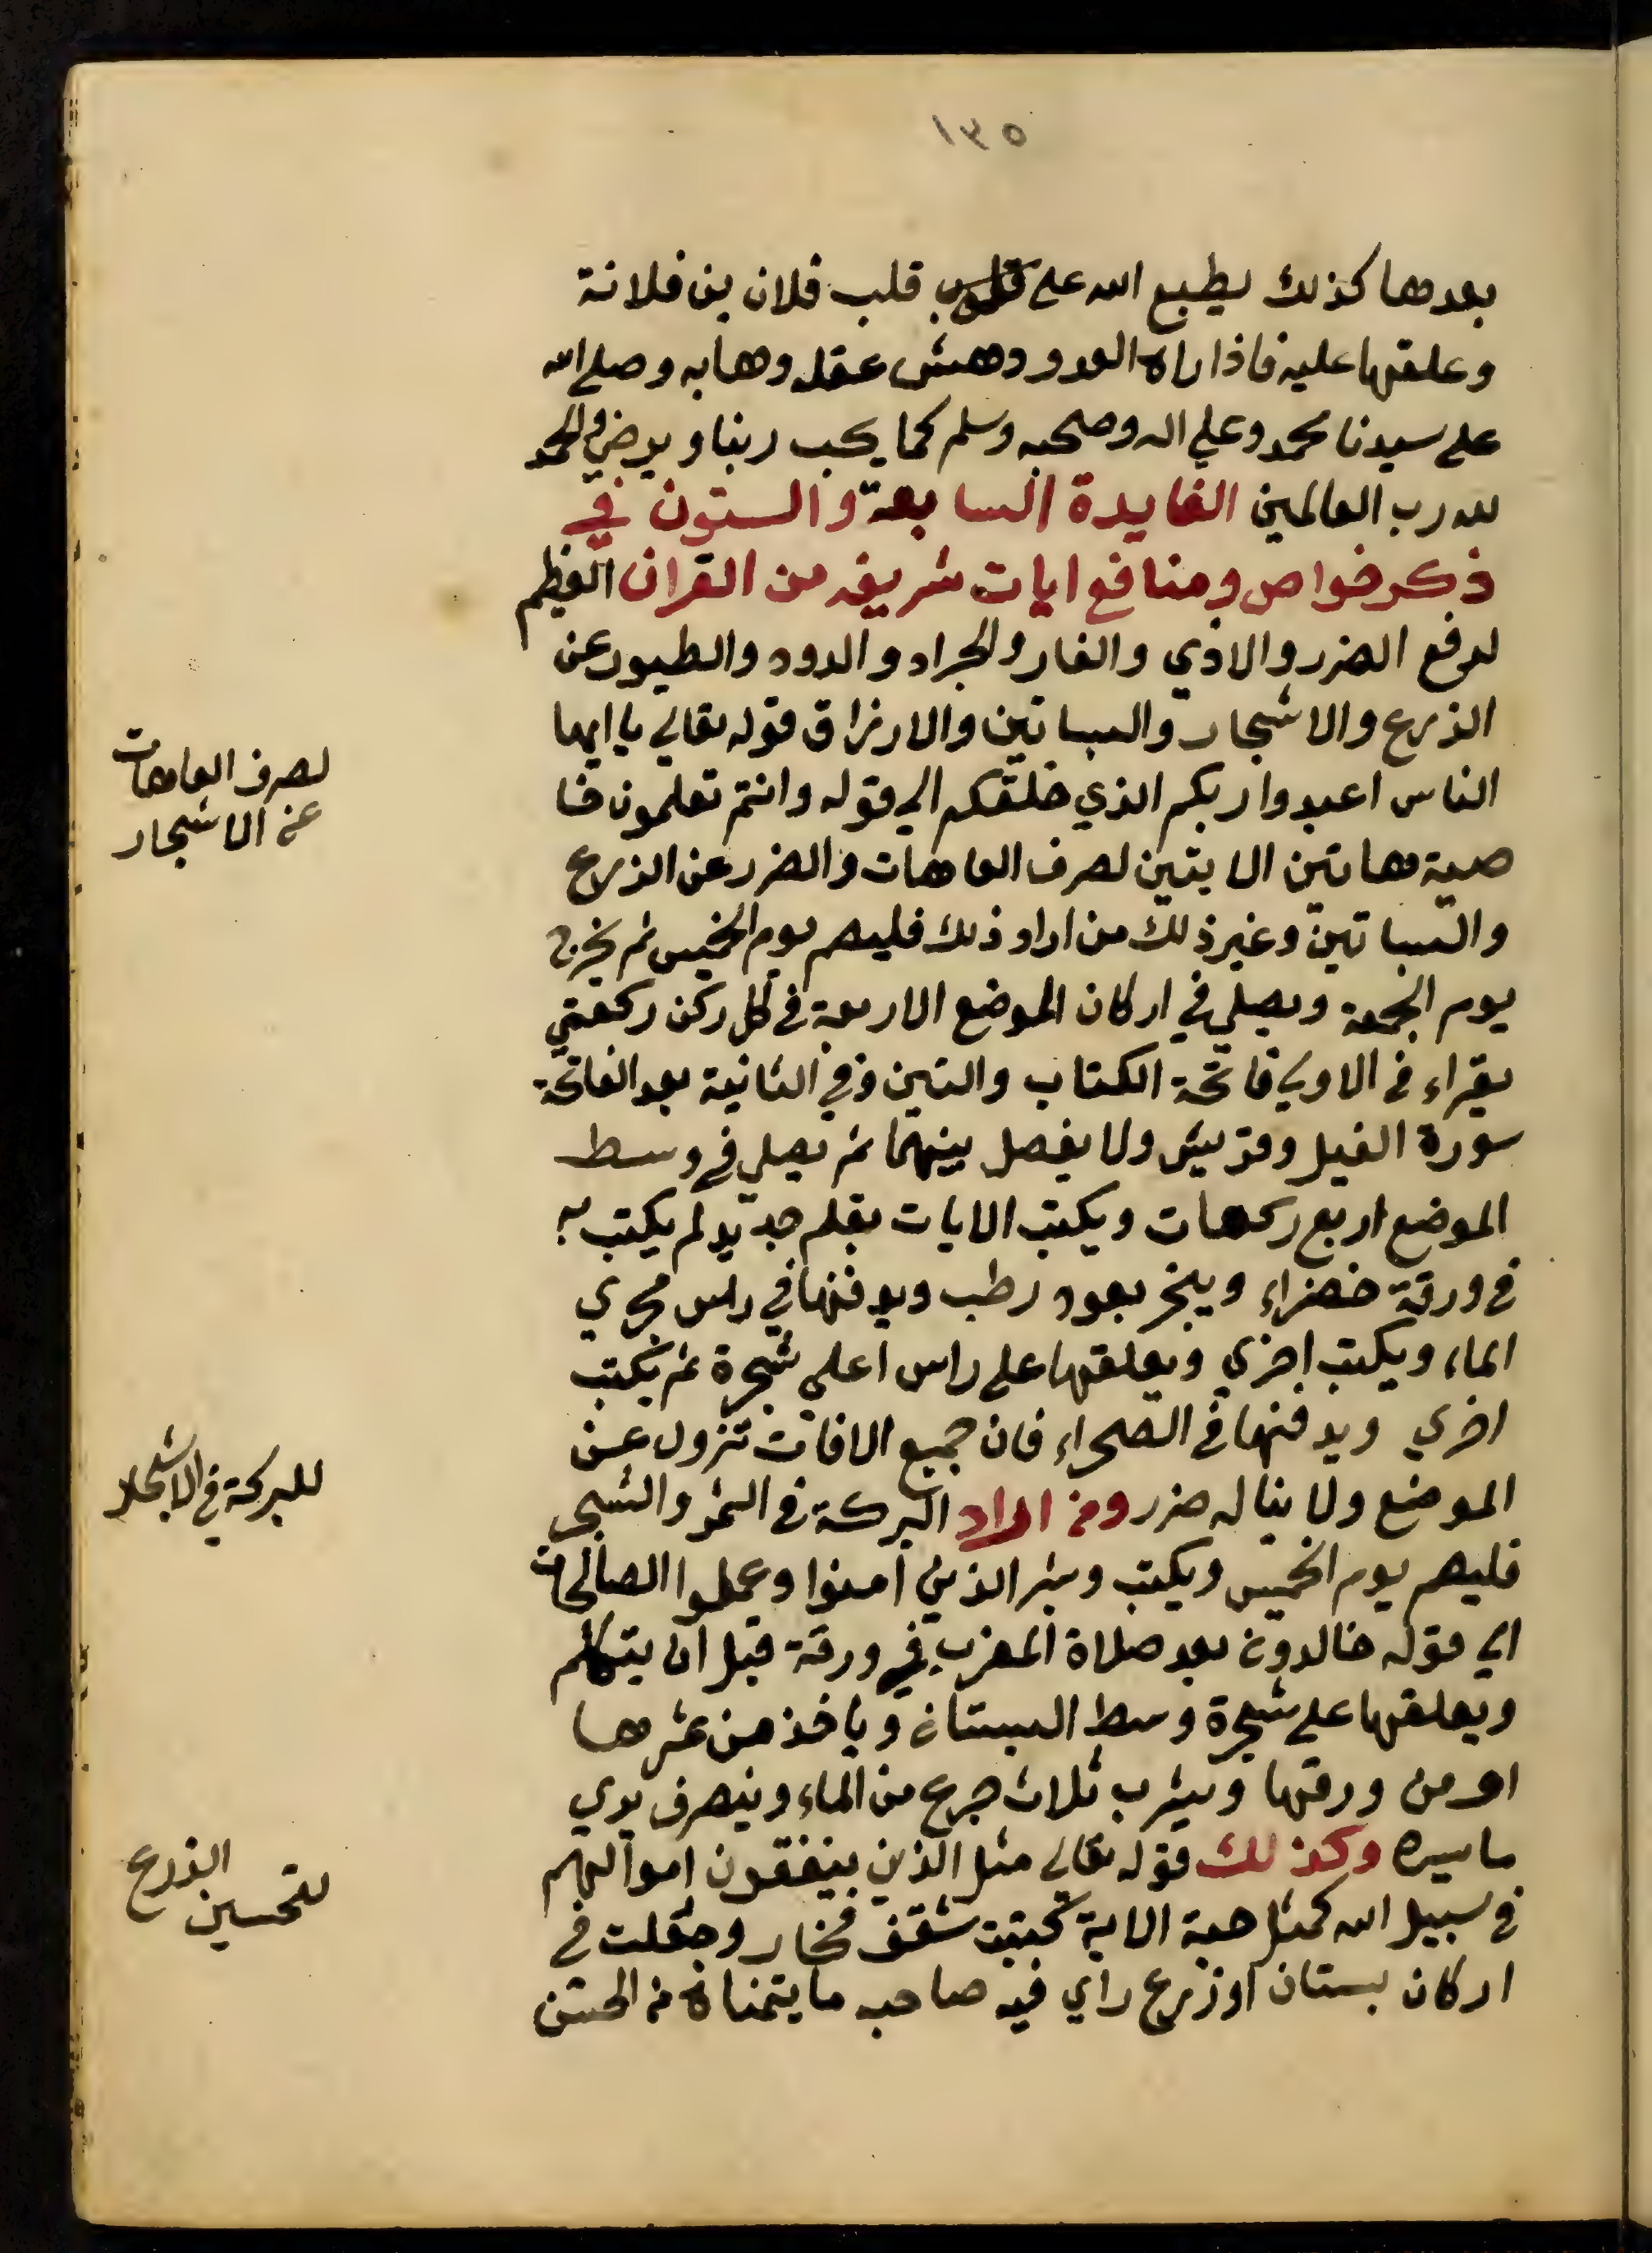 ١٣٥
بعدها كذلك يطبع الله على قلوب قلب فلان بن فلانة
وعلقها عليه فاذا راه العدو دهش عقله وهابه وصلى الله
على سيدنا محمد وعلي اله وصحبه وسلم كما يحب ربنا ويرضي والحمد
لله رب العالمين الفايدة السابعة والستون في
ذكر خواص ومنافع ايات شريفه من القران العظيم
لدفع الضرر والاذي والفار والجراد والدود والطيور عن
الزرع والاشجار والبساتين والارزاق قوله تعالي يا ايها
الناس اعبدوا ربكم الذي خلقكم الي قوله وانتم تعلمون خا
صية هاتين الايتين لصرف العاهات والضرر عن الزرع
والبساتين وغير ذلك من اراد ذلك فليصم يوم الخميس ثم يخرج
يوم الجمعة ويصلي في اركان الموضع الاربعة في كل ركن ركعتي
يقراء في الاولي فاتحة الكتاب والتين وفي الثانية بعد الفاتحة
سورة الفيل وقريش ولا يفصل بينهما ثم يصلي في وسط
الموضع اربع ركعات ويكتب الايات بقلم جديد لم يكتب به
في ورقة خضراء ويبخر بعود رطب ويدفنها في راس مجري
الماء ويكتب اخري ويعلقها على راس اعلي شجرة ثم يكتب
اخري ويدفنها في الصحراء فان جميع الافات تزول عن
الموضع ولا يناله ضرر ومن اراد البركة في الثمر والشجر
فليصم يوم الخميس ويكتب وبشر الذين امنوا وعملوا الصالحات
الي قوله خالدون بعد صلاة المغرب في ورقة قبل ان يتكلم
ويعلقها على شجرة وسط البستان وياخذ من ثمرها
او من ورقها ويشرب ثلاث جرع من الماء وينصرف يري
ما يسره وكذلك قوله تعالي مثل الذين ينفقون اموالهم
في سبيل الله كمثل حبة الاية كتبت شقف فخار وجعلت في
اركان بستان او زرع راي فيه صاحبه ما يتمناه من الحسن
لصرف العاهات
عن الاشجار
للبركة في الاشجار
لتحسين الزرع